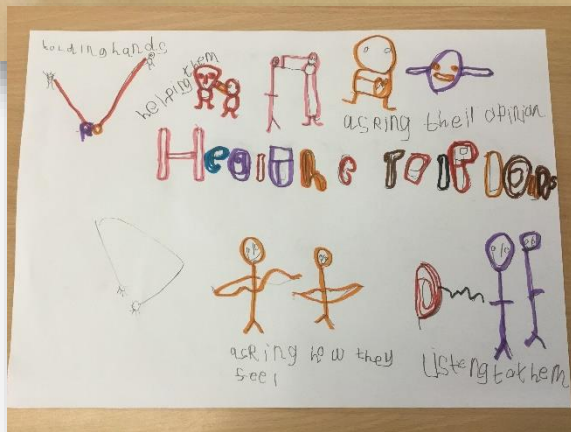 holding hands
helping them
asking their opinian
Healthe
asking how they
feel
Listengtothem